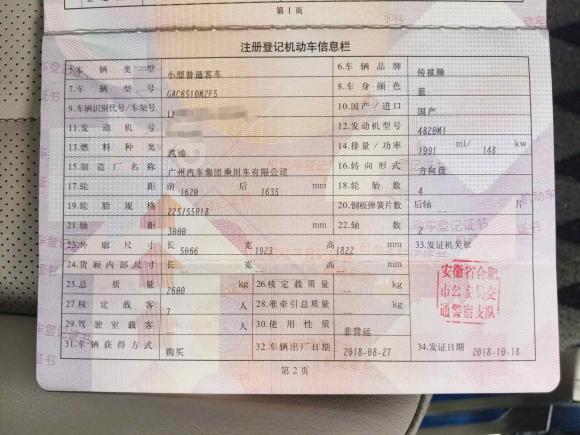 第1页
注册登记机动车信息栏
5.车辆类型 小型普通客车 6.车辆品牌 传祺牌
7.车辆型号 GAC6510M2F5 8.车身颜色 蓝
9.车辆识别代号/车架号 L 10.国产/进口 国产
11.发动机号 12.发动机型号 4B20M1
13.燃料种类 汽油 14.排量/功率 1991 ml/ 148 kw
15.制造厂名称 广州汽车集团乘用车有限公司 16.转向形式 方向盘
17.轮距 前 1620 后 1635 mm 18.轮胎数 4
19.轮胎规格 225/55R18 20.钢板弹簧片数 后轴 片
21.轴距 3000 mm 22.轴数 2
23.外廓尺寸 长 5066 宽 1923 高 1822 mm 33.发证机关章
24.货厢内部尺寸 长 宽 高 mm
25.总质量 2600 kg 26.核定载质量 kg
27.核定载客 7 人 28.准牵引总质量 kg
29.驾驶室载客 人 30.使用性质 非营运
31.车辆获得方式 购买 32.车辆出厂日期 2018-08-27 34.发证日期 2018-10-18
安徽省合肥
市公安局交
通警察支队
第2页